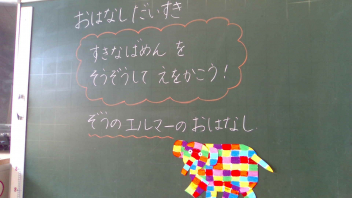 おはなしだいすき
すきなばめん を
そうぞうして えをかこう!
ぞうの エルマーの おはなし.